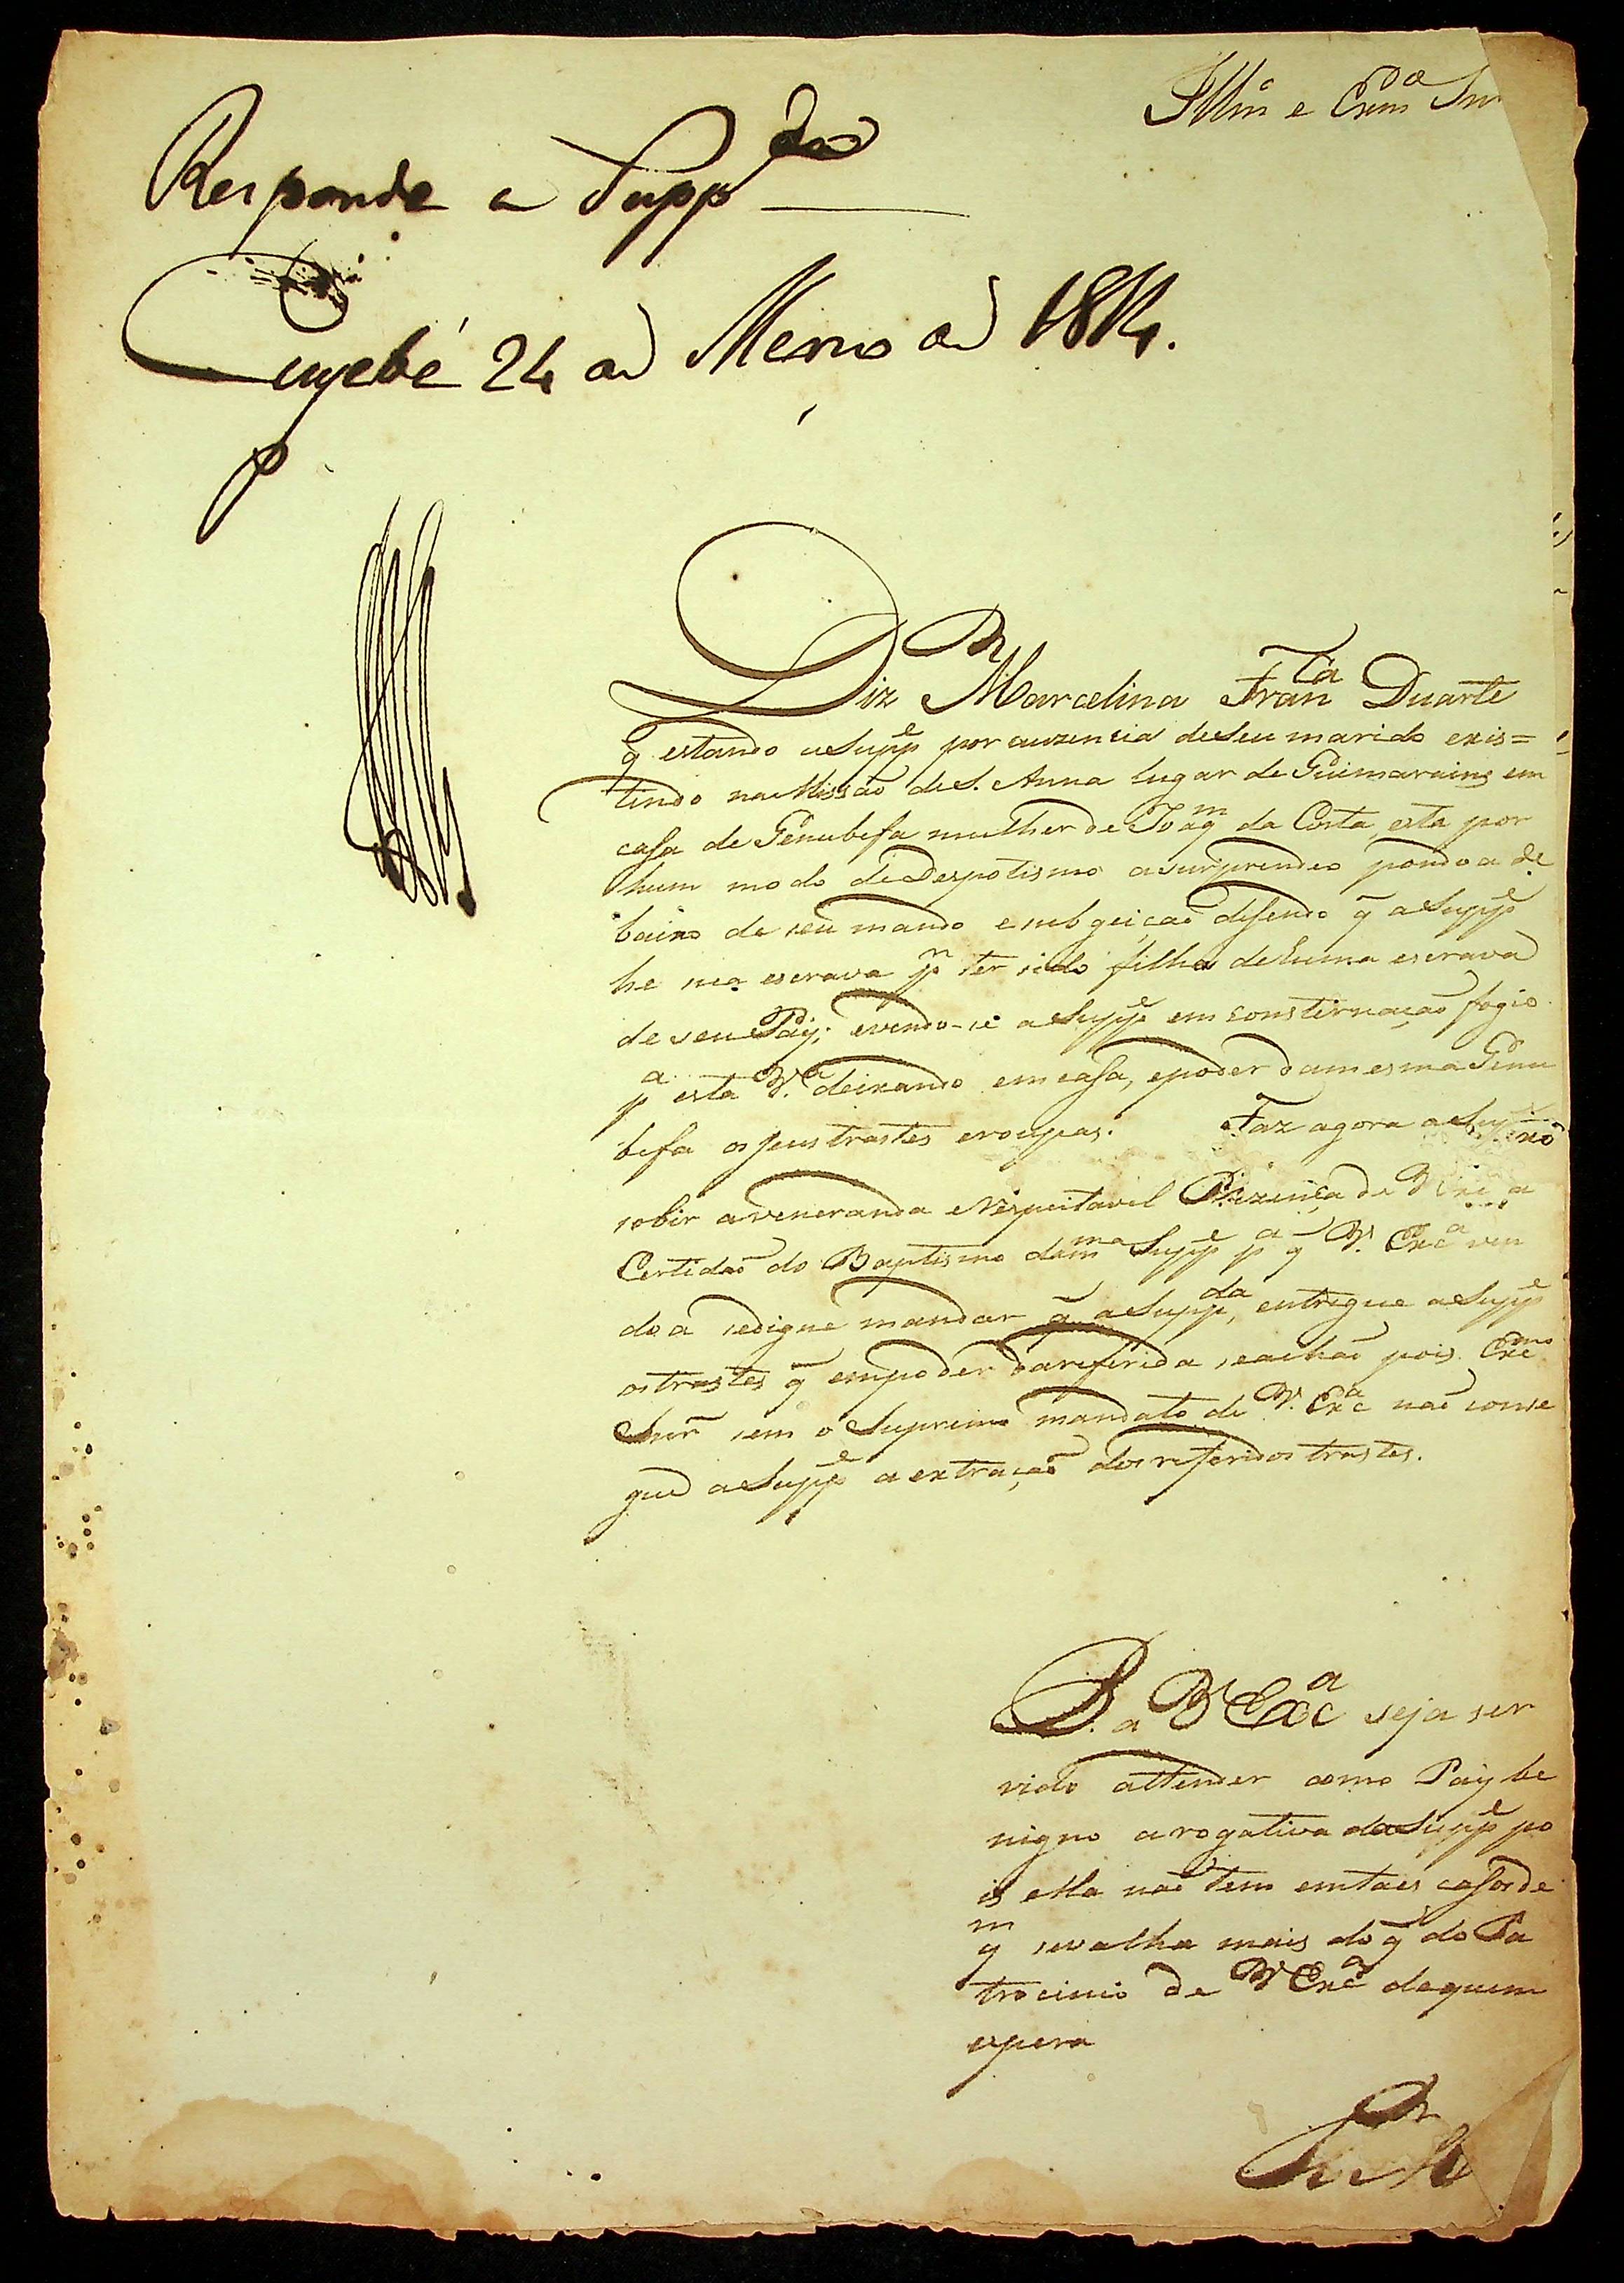 Illm̃o e Exmo Snr
Responde a Suppda
Cuyabá 24 de Março de 1814.
Diz Marcelina Franca Duarte
q̃ estando a Suppe por auzencia de Seu marido exis=
tindo na Missão de S. Anna lugar de Guimarains em
casa de Genubefa mulher de Joaqm da Costa, esta por
hum modo de Despotismo a surprendeo pondo a de
baixo de seu mando e subgeição dizendo q̃ a Suppe
he sua escrava pr ter sido filha de huma escrava
de seu Pay; e vendo-se a Suppe em consternação fogio
pa esta Va deixando em casa, e poder da mesma Genu
befa os seus trastes e roupas. Faz agora a
sobir a veneranda e Respeitavel Prezença de V Exca a
Certidão do Baptismo da mma Suppe pa q̃ V. Exca ven
do a se digne mandar q̃ a Suppda, entregue a Suppe
os trastes q̃ em poder da referida se achão pois Exmo
Snr̃ sem o Supremo mandato de V. Exca não conse
gue a Suppe a extração dos referidos trastes.
P. a V Exca seja ser
vido attender como Pay be
nigno a rogativa da Suppe po
is ella não tem em taes casos de
qm se valha mais do q̃ do Pa
trocinio de V Exca de quem
espera